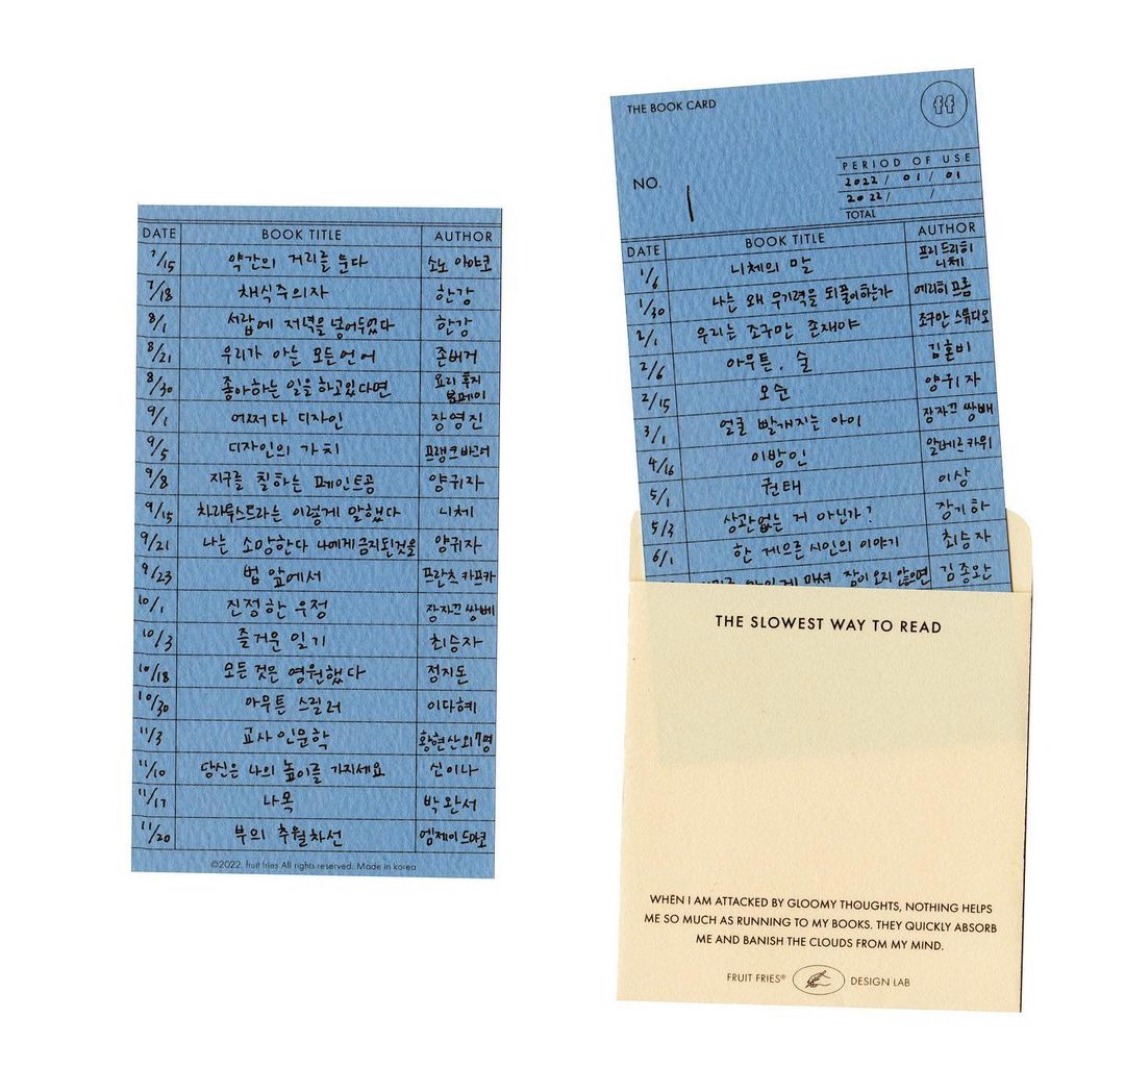 DATE BOOK TITLE AUTHOR
7/15 약간의 거리를 둔다 소노 아야코
7/18 채식주의자 한강
8/1 서랍에 저녁을 넣어두었다 한강
8/21 우리가 아는 모든 언어 존버거
8/30 좋아하는 일을 하고있다면 요리 후지
9/1 어쩌다 디자인 장영진
9/5 디자인의 가치 프랭크바그너
9/8 지구를 칠하는 페인트공 양귀자
9/15 차라투스트라는 이렇게 말했다 니체
9/21 나는 소망한다 나에게 금지된것을 양귀자
9/23 법 앞에서 프란츠 카프카
10/1 진정한 우정 장 자끄 쌍뻬
10/3 즐거운 일기 최승자
10/18 모든 것은 영원했다 정지돈
10/30 아무튼 스릴러 이다혜
11/3 교사 인문학 황현산외7명
11/10 당신은 나의 높이를 가지세요 신이나
11/17 나목 박완서
11/20 부의 추월차선 엠제이 드마코
©2022. fruit fries All rights reserved. Made in korea
THE BOOK CARD ff
PERIOD OF USE
NO. 1 2022/01/01
2022/ /
TOTAL
DATE BOOK TITLE AUTHOR
1/6 니체의 말 프리드리히 니체
1/30 나는 왜 무기력을 되풀이하는가 에리히 프롬
2/1 우리는 조구만 존재야 조구만 스튜디오
2/6 아무튼, 술 김혼비
2/15 모순 양귀자
3/1 얼굴 빨개지는 아이 장자끄 쌍뻬
4/16 이방인 알베르 카뮈
5/1 권태 이상
5/3 상관없는 거 아닌가? 장기하
6/1 한 게으른 시인의 이야기 최승자
마셔 잠이 오지 않으면 김종완
THE SLOWEST WAY TO READ
WHEN I AM ATTACKED BY GLOOMY THOUGHTS, NOTHING HELPS
ME SO MUCH AS RUNNING TO MY BOOKS. THEY QUICKLY ABSORB
ME AND BANISH THE CLOUDS FROM MY MIND.
FRUIT FRIES® DESIGN LAB